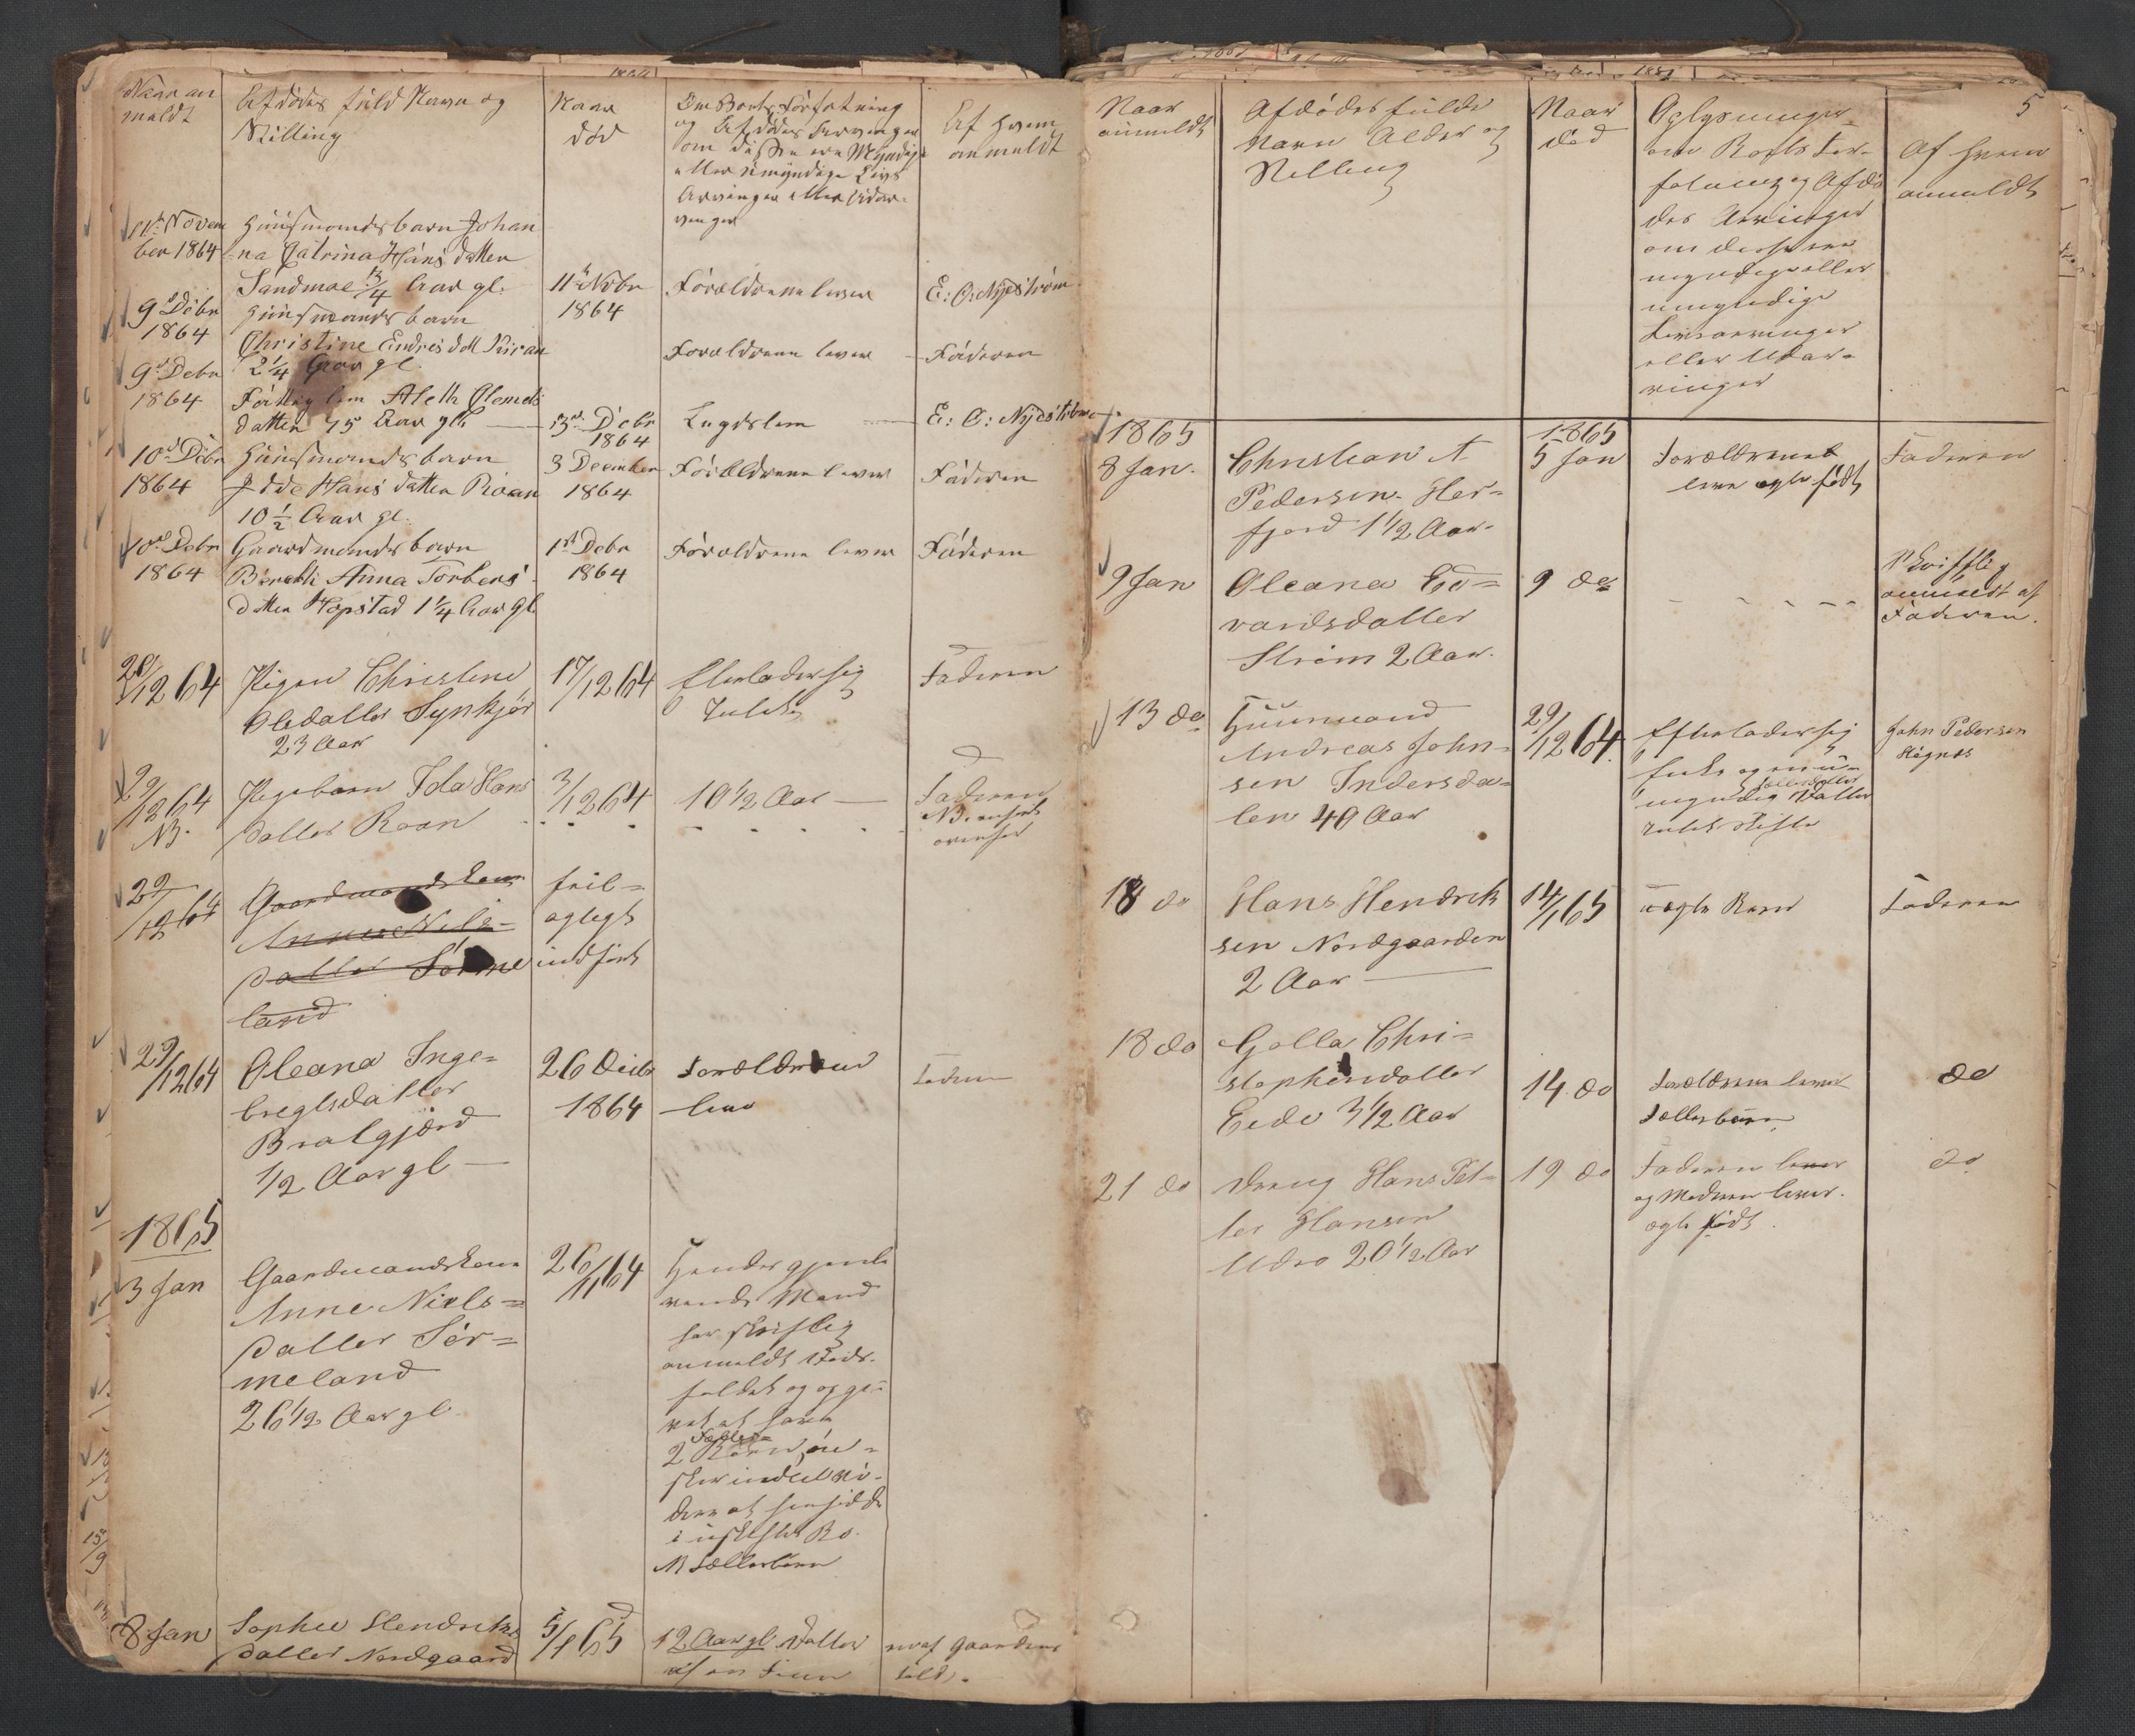 Naar an
meldt
Afdødes fuld Navn og
Stilling
Naar
død
Om Boets Forfatning
og Afdødes Arvinger
om disse ere Myndige
eller Umyndige Livs
Arvinger eller Udar-
vinger
Af hvem
anmeldt
11te Novem
ber 1864
Huusmandsbarn Johan
na Catrina Hans datter
Sandmoe 1¾ Aar gl.
11te Nobr
1864
Forældrene lever
E: O: Nydstrøm
9de Debr
1864
Huusmands barn
Christine Endres dtt
2¼ Aar gl.
Forældrene lever
Faderen
9de Debr
1864
Fattig lem Aleth Clemets
datter 75 Aar gl.
3de Debr
1864
Lægdslem
E: O: Nydstrøm
10de Debr
1864
Huusmands barn
Idde Hans datter Roan
10 ½ Aar gl.
3 December
1864
Forældrene lever
Faderen
10de Debr
1864
Gaardmands barn
Berethi Anna Torbers
datter Hopstad 1¼ Aar gl
1ste Debr
1864
Forældrene lever
Faderen
20/12 64
Pigen Christine
Oledatter Synkjør
23 Aar
17/12 64
Efterlader sig
Intet
Faderen
29/12 64
NB.
Pigebarn Ida Hans
datter Roan
3/12 64
10 ½ Aar
Faderen
NB. anført
ovenfor
29/12 64
Gaardmandskone
Anne Niels-
datter Sørme
land
feil-
agtigt
indført
29/12 64
Oleana Inge-
bregtsdatter
Bratgjærd
1/2 Aar gl
26 Decbr
1864
Forældrene
leve
Faderen
1865
3 Jan
Gaardmandskone
Anne Niels-
datter Sør-
meland
26 1/2 Aar gl.
26/11 64
Hendes gjenle
vende Mand
har skriftlig
anmeldt Døds-
faldet og opgi-
vet at have
Fælles-
2 Børn, øn-
sker indtil vi-
dere at hensidde
i uskiftet Bo.
NB Fællesbørn
8 Jan
Sophie Hendriks
datter Nordgaard
5/1 65
12 Aar gl. Datter
af en Finn
paa Gaardens
1865
8 Jan.
Naar
anmeldt
Afdødes fulde
Navn Alder og
Stilling
Naar
død
Oplysninger
om Boets For-
fatning og Afdø
des Arvinger
om disse ere
myndige eller
umyndige
Livsarvinger
eller Udar-
vinger
Af hvem
anmeldt
5
Christian A
Pedersen Her-
fjord 1 1/2 Aar.
1865
5 Jan
Forældrene
leve ægte født
Faderen
9 Jan
Oleana Ed-
vardsdatter
Strøm 2 Aar.
9 do
Skriftlig
anmeldt af
Faderen.
13 do
Huusmand
Andreas John-
sen Indersda-
len 49 Aar
29/12 64
Efterlader sig
Enke og en u-
myndig Datter
intet Skifte
John Pedersen
Hegnes
18 do
Hans Hendrik
sen Nordgaarden
2 Aar
14/1 65
uægte Barn
Faderen
18 do
Golla Chri-
stophersdatter
Eide 3 1/2 Aar
14 do
Forældrene lever
Fællesbarn
do
21 do
Dreng Hans Pet-
ter Hansen
Udro 20 1/2 Aar
19 do
Faderen lever
og Moderen lever.
ægte født.
do